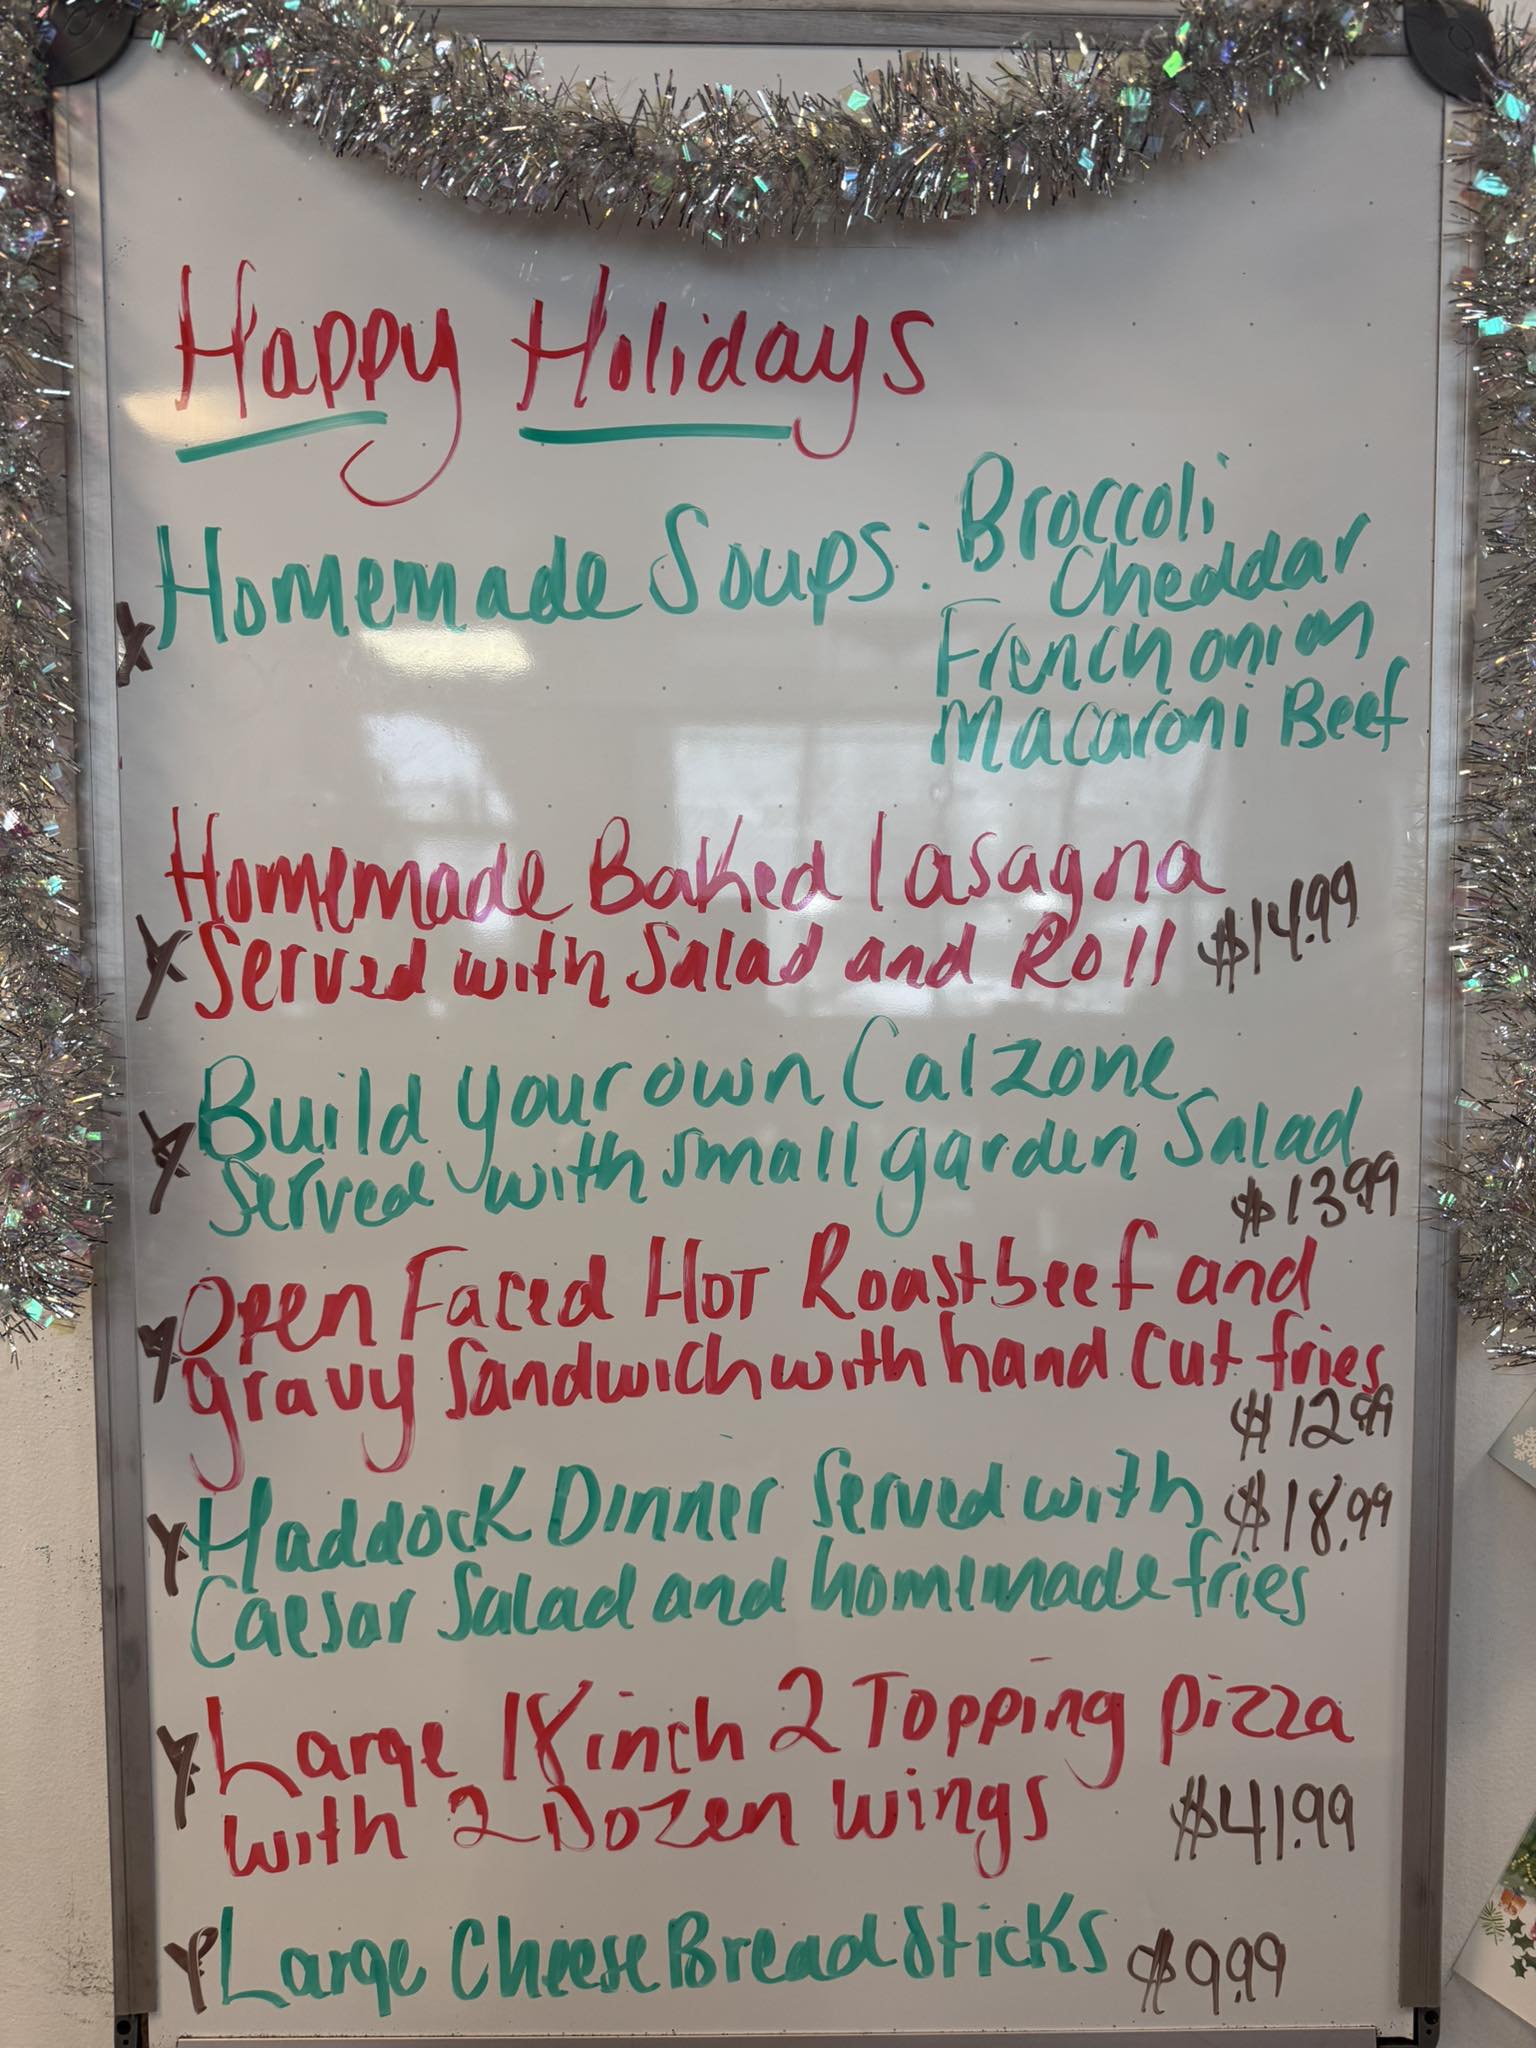 Happy Holidays
Homemade Soups: Broccoli
Cheddar
French onion
Macaroni Beef
Homemade Baked lasagna
Served with Salad and Roll $14.99
Build your own Calzone
Served with small garden Salad
$13.99
Open Faced Hot Roast beef and
gravy Sandwich with hand cut fries
$12.99
Haddock Dinner Served with $18.99
Caesar Salad and homemade fries
Large 18 inch 2 Topping pizza
with 2 Dozen wings $41.99
Large Cheese Bread Sticks $9.99